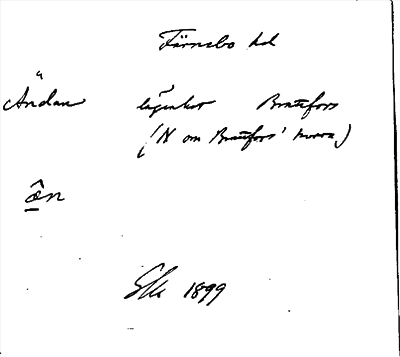 Färnebo hd
Ändan lägenhet Brattfors
(N om Brattfors' norra)
æ̂n
1899